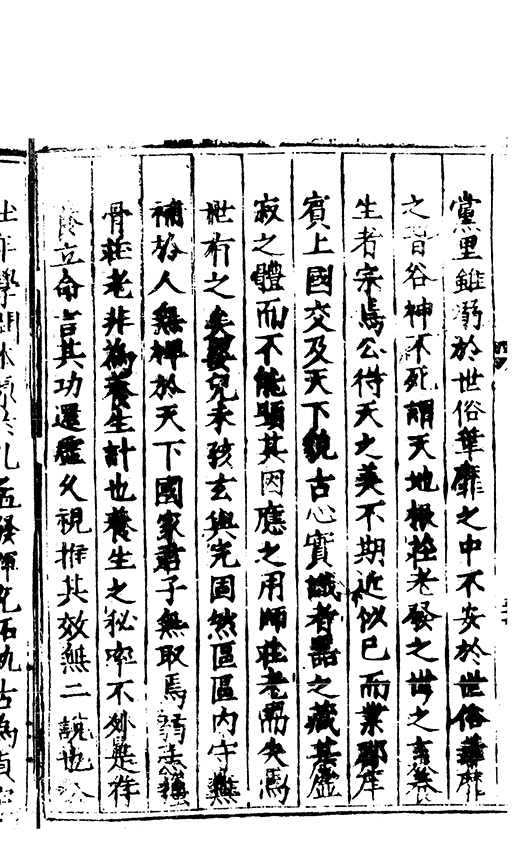 黨里雖溺於世俗華靡之中不安於世俗華靡
之習谷神不死謂天地根莊老發之世之言養
生者宗焉公待天之美不期近似已而業郡庠
賓上國交及天下貌古心實識者器之藏其虛
寂之體而不能顯其因應之用師莊老而失焉
世有之矣嬰兒未孩玄與完固然區區內守無
補於人無禆於天下國家君子無取焉弱志強
骨莊老非為養生計也養生之秘率不外是存
養立命言其功還虛久視推其效無二說也